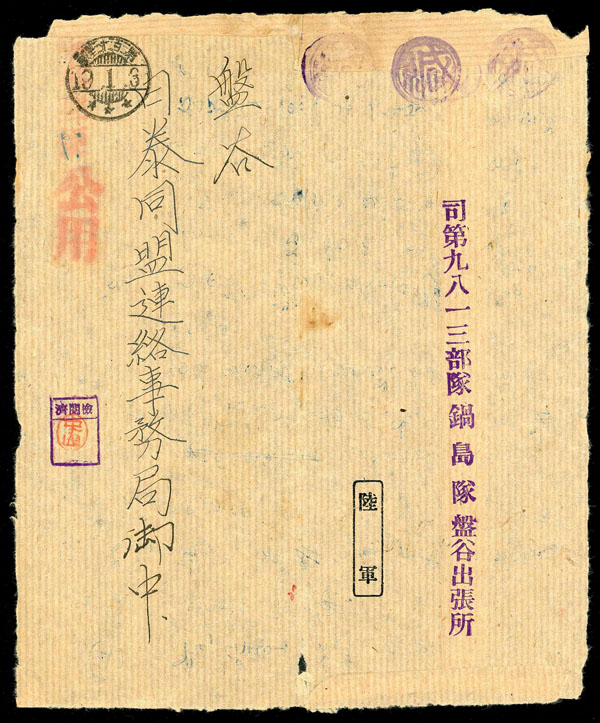 司第九八一三部隊 鍋島隊 盤谷出張所
陸軍
緘
盤谷
日泰同盟連絡事務局御中
19.1.3
公用
檢閲濟